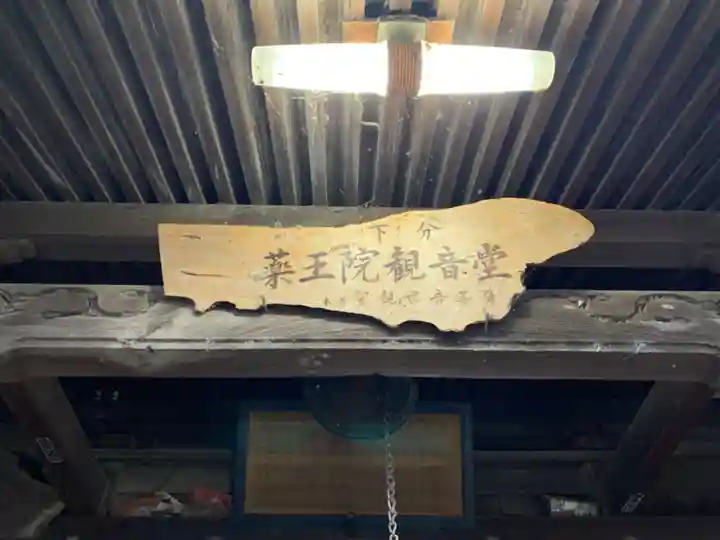 下分
薬王院観音堂